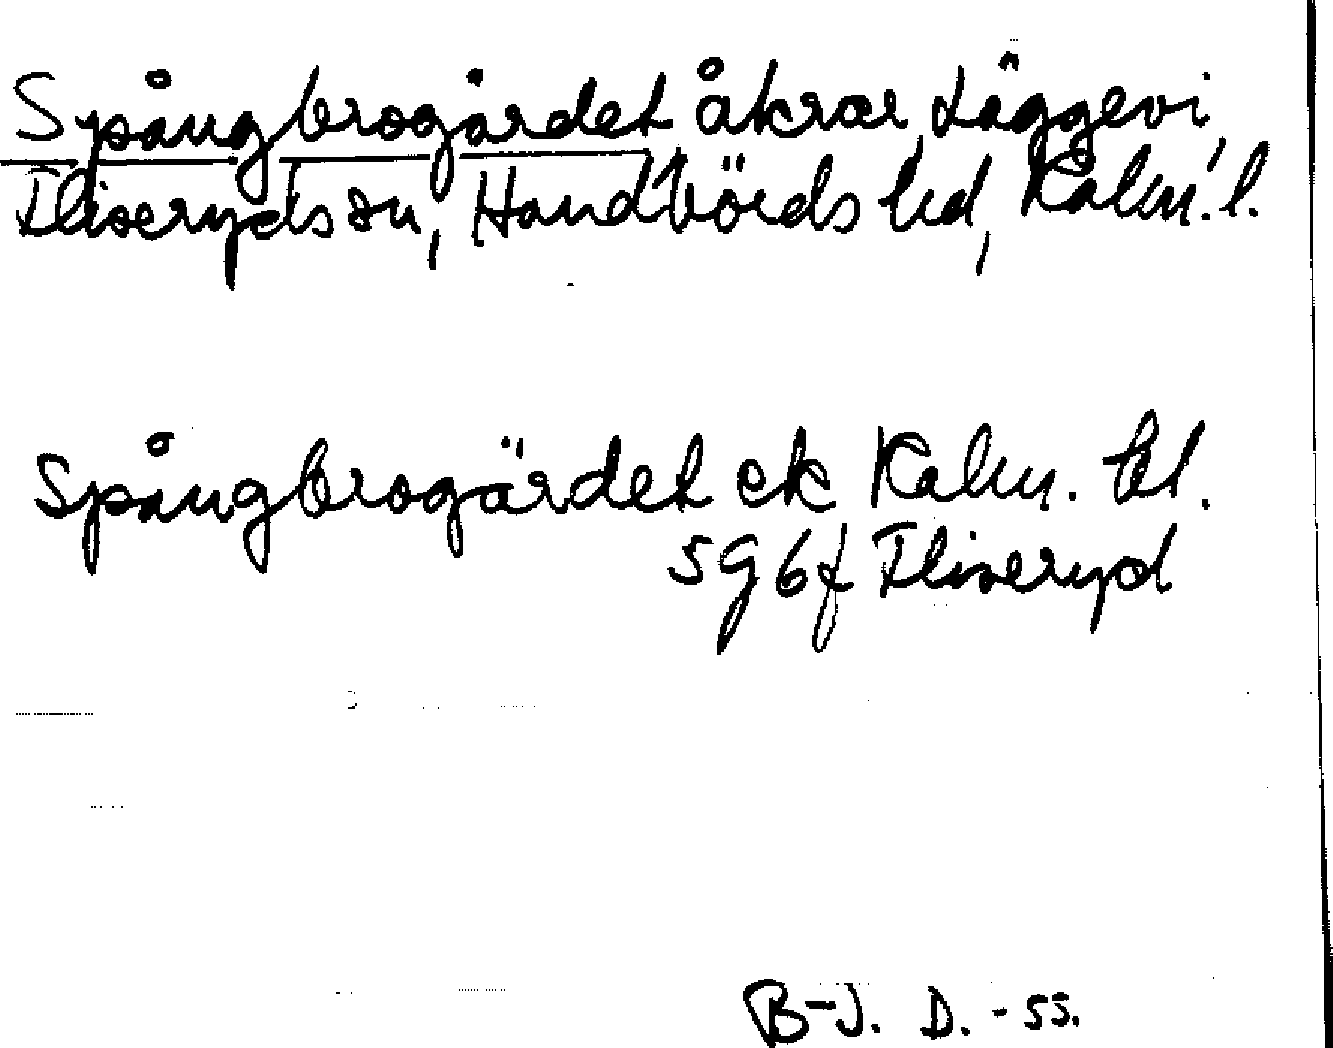 Spångbrogärdet åkrar, Läggevi,
Fliseryds sn, Handbörds hd, Kalm. l.
Spångbrogärdet ek Kalm. bl.
5G6f Fliseryd
B-J. D. -55.